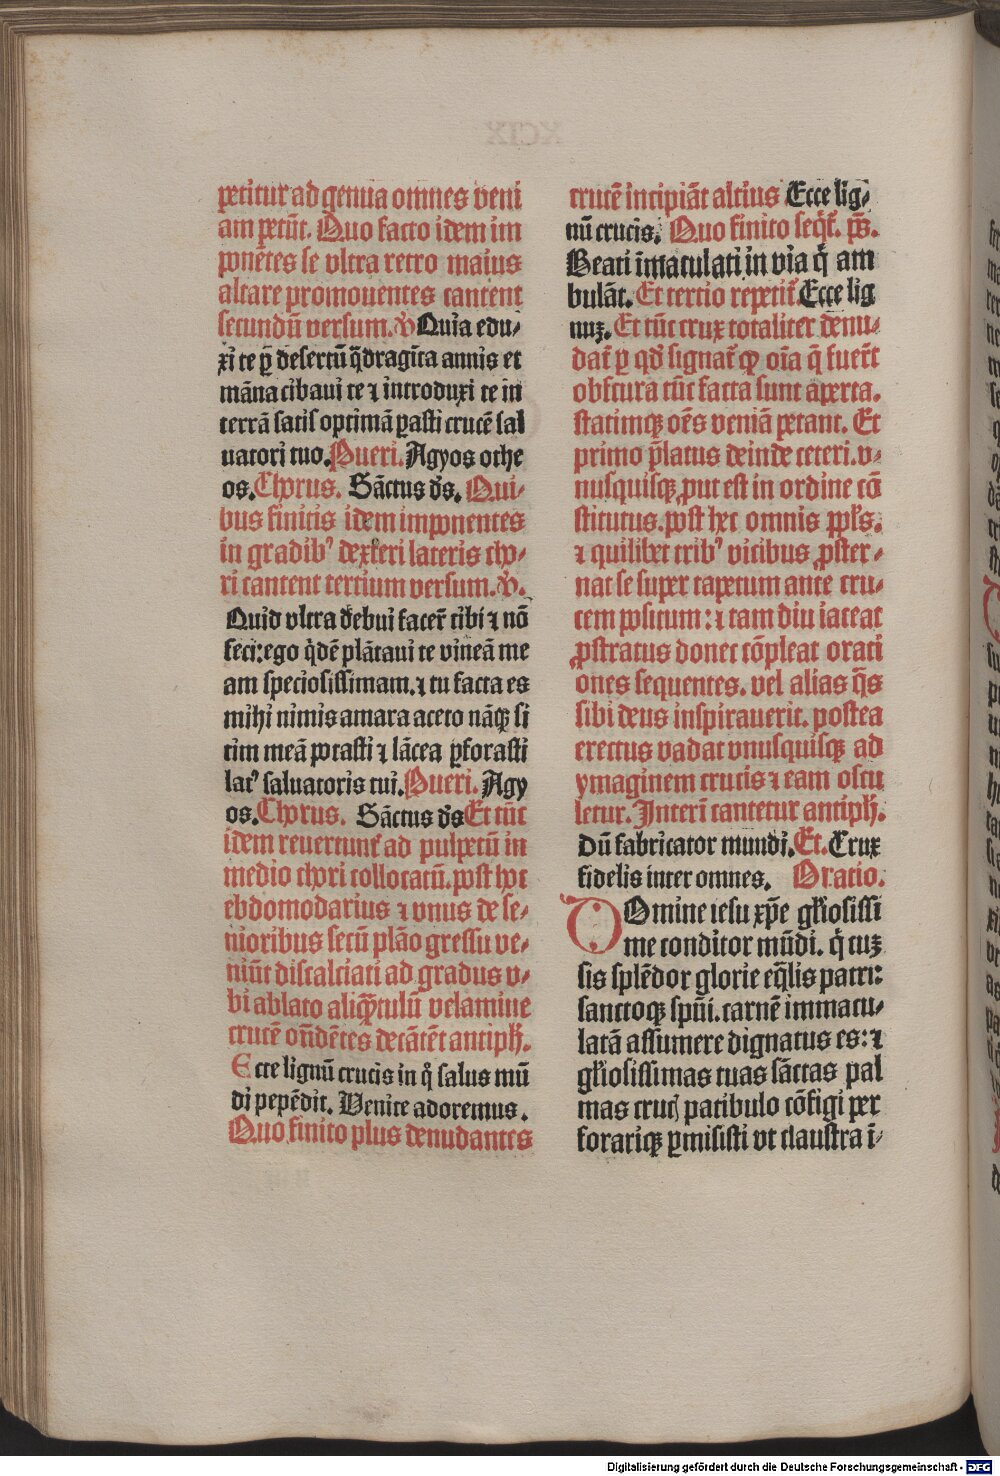 petitur ad genua omnes veni
am petūt. Quo facto idem im
ponētes se vltra retro maius
altare promouentes cantent
secundū versum. ꝟ Quia edu⸗
xi te ꝑ desertū q̄dragīta annis et
māna cibaui te ⁊ introduxi te in
terrā satis optimā ꝑasti crucē sal
uatori tuo. Pueri. Agyos othe
os. Chorus. Sāctus d̄s. Qui⸗
bus finitis idem imponentes
in gradib⁹ dexteri lateris cho⸗
ri cantent tercium versum. ꝟ.
Quid vltra debui facer̄ tibi ⁊ nō
feci: ego q̄dē plātaui te vineā me
am speciosissimam. ⁊ tu facta es
mihi nimis amara aceto nāqꝫ si
tim meā potasti ⁊ lācea ꝑforasti
lat⁹ saluatoris tui. Pueri. Agy
os. Chorus. Sāctus d̄s Et tūc
idem reuertunt̄ ad pulpetū in
medio chori collocatū. post hoc
ebdomodarius ⁊ vnus de se⸗
nioribus secū plāo gressu ve⸗
niūt discalciati ad gradus v⸗
bi ablato aliq̄tulū velamine
crucē on̄dētes decātēt antiph̄.
Ecce lignū crucis in q̄ salus mū
di pepēdit. Venite adoremus.
Quo finito plus denudantes
crucē incipiāt altius Ecce lig⸗
nū crucis. Quo finito seqt̄. ps̄.
Beati īmaculati in via q̄ am
bulāt. Et tertio repetit̄. Ecce lig
nuꝫ. Et tūc crux totaliter denu⸗
dat̄ ꝑ qd̄ signat̄ ꝙ oīa q̄ fuer̄t
obscura tūc facta sunt aperta.
statimqꝫ oēs veniā petant. Et
primo p̄latus deinde ceteri. v⸗
nusquisqꝫ ꝓut est in ordine cō
stitutus. post hec omnis ppl̄s.
⁊ quilibet trib⁹ vicibus ꝓster⸗
nat se super tapetum ante cru⸗
cem positum: ⁊ tam diu iaceat
ꝓstratus donec cōpleat orati
ones sequentes. vel alias q̄s
sibi deus inspirauerit. postea
erectus vadat vnusquisqꝫ ad
ymaginem crucis ⁊ eam oscu
letur. Interī cantetur antiph̄.
Dū fabricator mundi. Et. Crux
fidelis inter omnes. Oratio.
DOmine iesu xp̄e gl̄iosissi
me conditor mūdi. q̄ cuꝫ
sis splēdor glorie eq̄lis patri:
sanctoqꝫ spūi. carnē immacu⸗
latā assumere dignatus es: ⁊
gl̄iosissimas tuas sāctas pal
mas cruc̄ patibulo cōfigi per
forariqꝫ ꝑmisisti vt claustra ī⸗
Digitalisierung gefördert durch die Deutsche Forschungsgemeinschaft - DFG